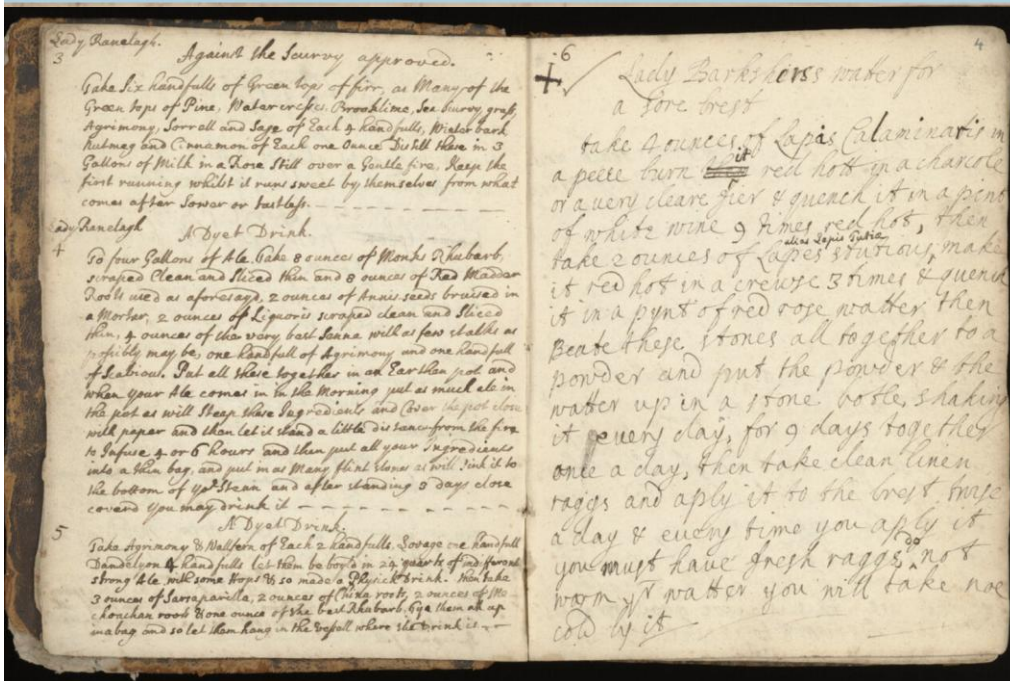 Lady Ranelagh.
3
Against the Scurvy approved.
Take Six handfulls of Green tops of firr, as Many of the
Green tops of Pine, Watercresses, Brooklime, Sea Scurvy grass,
Agrimony, Sorrell and Sage of Each 4 handfulls, Winter bark
Nutmeg and Cinnamon of Each one Ounce Distill these in 3
Gallons of Milk in a Rose Still over a Gentle fire, Keep the
first running whilst it runs sweet by themselves from what
comes after Sower or tastless.
Lady Ranelagh
4
A Dyet Drink.
To four Gallons of Ale Take 8 ounces of Monks Rhubarb,
scraped Clean and Sliced thin and 8 ounces of Red Madder
Roots used as aforesayd, 2 ounces of Annis seeds bruised in
a Morter, 2 ounces of Liquoris scraped clean and Sliced
thin, 4 ounces of the very best Senna with as few stalks as
possibly may be, one handfull of Agrimony and one handfull
of Scabious. Put all these together in an Earthen pot and
when your Ale comes in in the Morning put as much ale in
the pot as will Steep these Ingredients and Cover the pot close
with paper and then let it stand a little distance from the fire
to Infuse 4 or 6 hours and then put all your Ingredients
into a thin bag, and put in as Many flint stones as will sink it to
the bottom of ye Stean and after standing 3 days close
coverd you may drink it
5
A Dyet Drink.
Take Agrimony & Wallfern of Each 2 handfulls, Lovage one handfull
Dandelyon 4 handfulls let them be boyld in 24 quarts of indifferent
strong Ale with some Hops & so made a Physick Drink. then take
3 ounces of Sarsaparilla, 2 ounces of China roots, 2 ounces of Me
chouchan roots & one ounce of the best Rhubarb, tye them all up
in a bag and so let them hang in the Vessell where the Drink is
4
6
Lady Barkshierss watter for
a sore brest
take 4 ounces of Lapis Calaminaris in
a peece burn it red hott in a charcole
or a very cleare fier & quench it in a pint
of white wine 9 times red hot, then
alias Lapis Tutia
take 2 ounces of Lapes, make
it red hot in a crewse 3 times & quench
it in a pynt of red rose watter, then
Beate these stones all together to a
powder and put the powder & the
watter up in a stone botle, shaking
it every day, for 9 days together
once a day, then take clean linen
raggs and aply it to the brest twise
a day & every time you aply it
you must have fresh raggs do not
warm ye watter you will take noe
cold by it